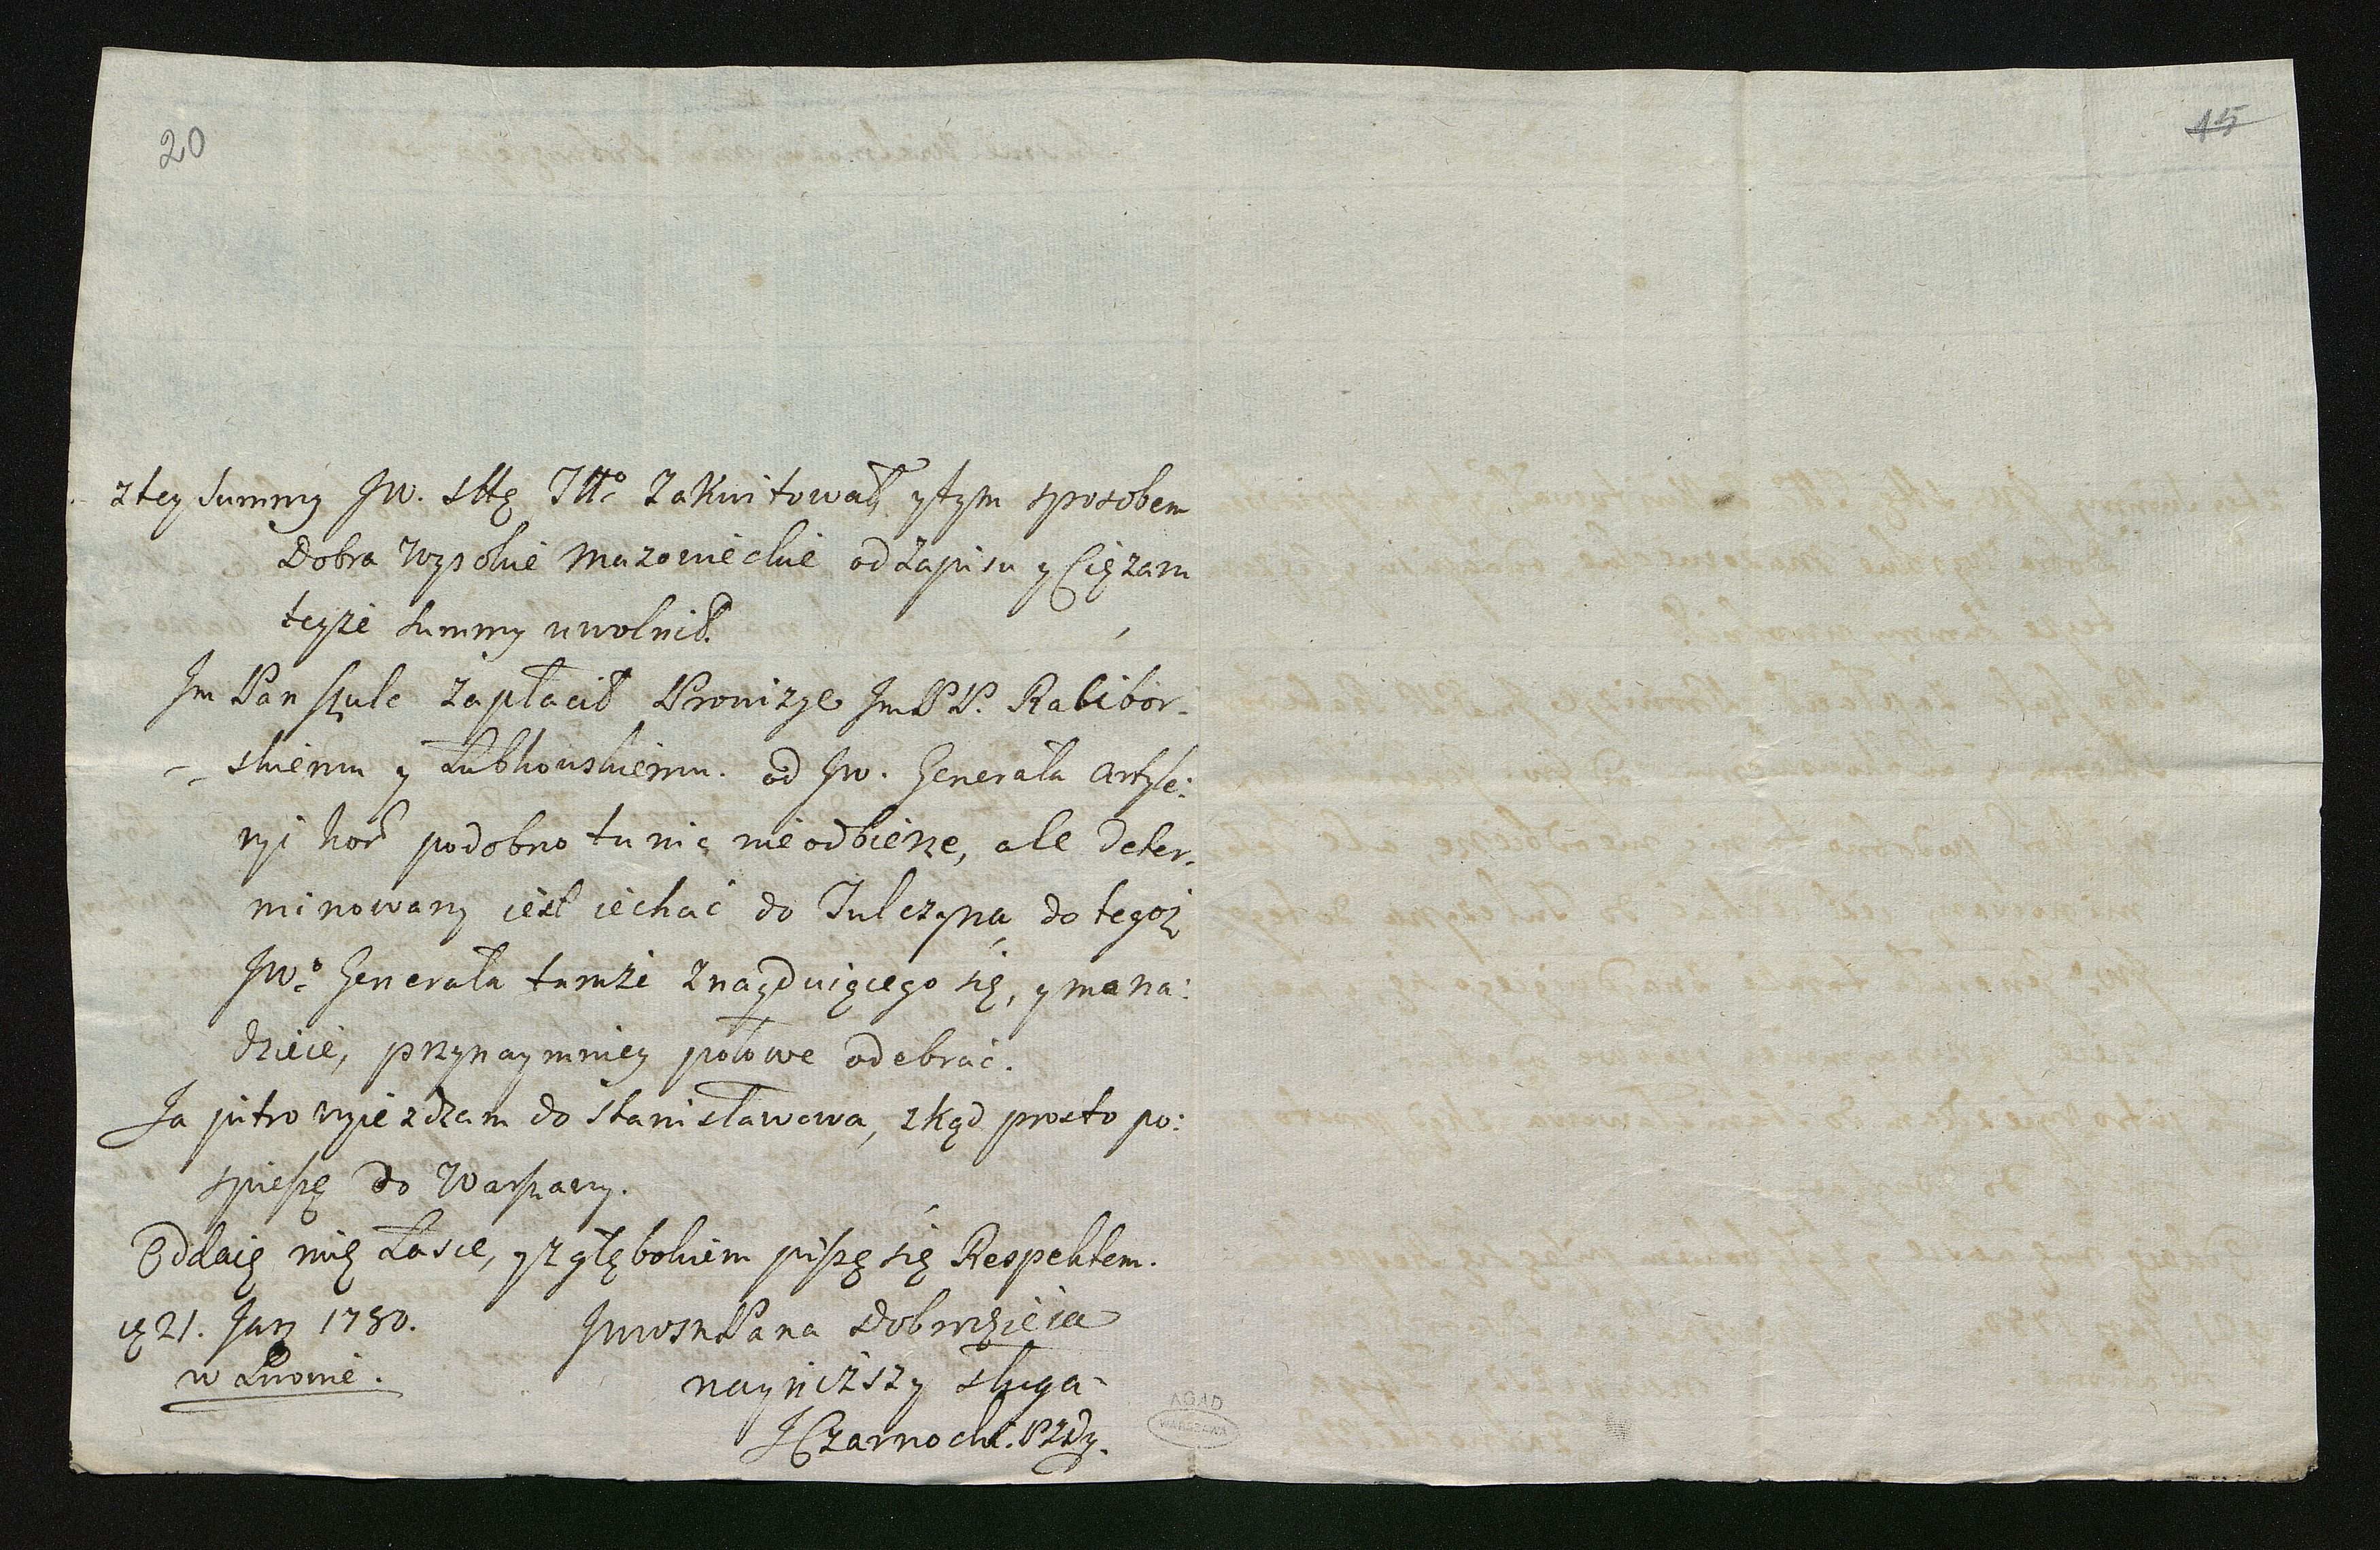 20
45
z tey Summy JW. Sttę Jttº zakwitował, y tym sposobem
Dobra Wysokie Mazowieckie od Zapisu y Ciężaru
teyże Summy uwolnił.
Jm Pan Szulc zapłacił Prowizye Jm PP. Racibor-
skiemu y Łubkouskiemu. od JW. Generała Artyle:
ryi kor podobno tu nic nie odbierze, ale deter-
minowany iest iechać do Tulczyna, do tegoż
JWº Generała tamże znayduiącego się, y ma na:
dzieię, przynaymniey połowe odebrać.
Ja jutro wyiezdzam do Stanisławowa, zkąd prosto po:
spieszę do Warszawy.
Oddaię mię Łasce, y z głębokiem piszę się Respektem.
21. Jan 1780.
w Lwowie.
JWWM Pana Dobrodzieia
nayniższy sługa
JCzarnocki.
AGAD
WARSZAWA